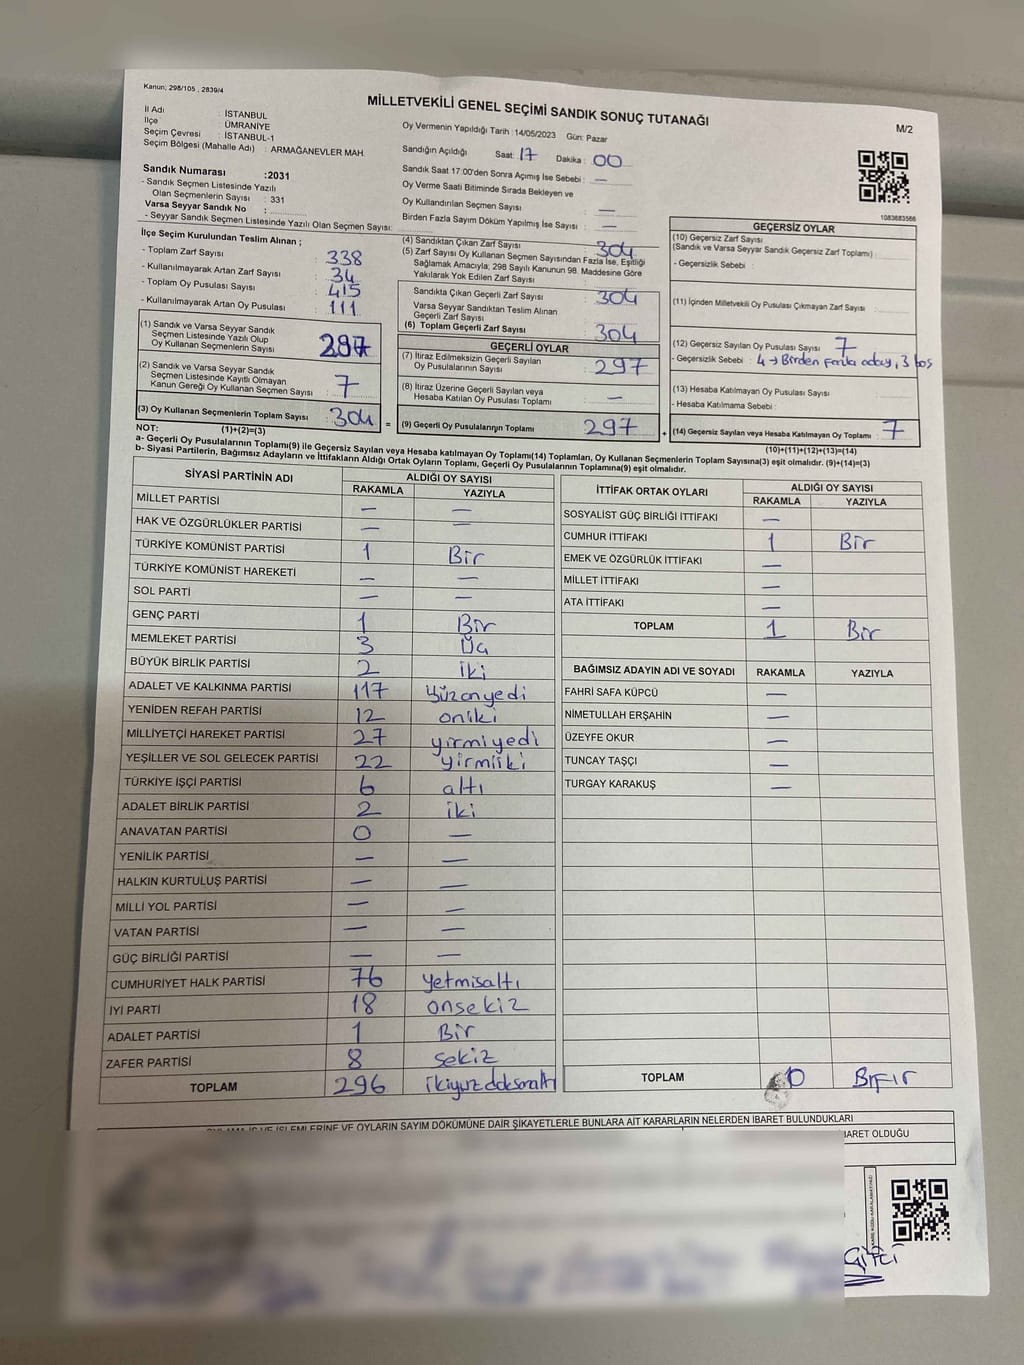 Kanun; 298/105 , 2839/4
MİLLETVEKİLİ GENEL SEÇİMİ SANDIK SONUÇ TUTANAĞI
M/2
İl Adı : İSTANBUL
İlçe : ÜMRANİYE
Seçim Çevresi : İSTANBUL-1
Seçim Bölgesi (Mahalle Adı) : ARMAĞANEVLER MAH.
Sandık Numarası :2031
- Sandık Seçmen Listesinde Yazılı
Olan Seçmenlerin Sayısı : 331
Varsa Seyyar Sandık No :
- Seyyar Sandık Seçmen Listesinde Yazılı Olan Seçmen Sayısı:
Oy Vermenin Yapıldığı Tarih :14/05/2023 Gün: Pazar
Sandığın Açıldığı Saat: 17 Dakika : 00
Sandık Saat 17:00'den Sonra Açımış İse Sebebi : —
Oy Verme Saati Bitiminde Sırada Bekleyen ve
Oy Kullandırılan Seçmen Sayısı : —
Birden Fazla Sayım Döküm Yapılmış İse Sayısı : —
1083683566
İlçe Seçim Kurulundan Teslim Alınan ;
- Toplam Zarf Sayısı : 338
- Kullanılmayarak Artan Zarf Sayısı : 34
- Toplam Oy Pusulası Sayısı : 415
- Kullanılmayarak Artan Oy Pusulası : 111
(1) Sandık ve Varsa Seyyar Sandık
Seçmen Listesinde Yazılı Olup
Oy Kullanan Seçmenlerin Sayısı 297
(2) Sandık ve Varsa Seyyar Sandık
Seçmen Listesinde Kayıtlı Olmayan
Kanun Gereği Oy Kullanan Seçmen Sayısı : 7
(3) Oy Kullanan Seçmenlerin Toplam Sayısı : 304
(4) Sandıktan Çıkan Zarf Sayısı : 304
(5) Zarf Sayısı Oy Kullanan Seçmen Sayısından Fazla İse, Eşitliği
Sağlamak Amacıyla; 298 Sayılı Kanunun 98. Maddesine Göre
Yakılarak Yok Edilen Zarf Sayısı :
Sandıkta Çıkan Geçerli Zarf Sayısı : 304
Varsa Seyyar Sandıktan Teslim Alınan
Geçerli Zarf Sayısı :
(6) Toplam Geçerli Zarf Sayısı : 304
GEÇERLİ OYLAR
(7) İtiraz Edilmeksizin Geçerli Sayılan
Oy Pusulalarının Sayısı : 297
(8) İtiraz Üzerine Geçerli Sayılan veya
Hesaba Katılan Oy Pusulası Toplamı : —
= (9) Geçerli Oy Pusulalarının Toplamı : 297
GEÇERSİZ OYLAR
(10) Geçersiz Zarf Sayısı
(Sandık ve Varsa Seyyar Sandık Geçersiz Zarf Toplamı) :
- Geçersizlik Sebebi :
(11) İçinden Milletvekili Oy Pusulası Çıkmayan Zarf Sayısı :
(12) Geçersiz Sayılan Oy Pusulası Sayısı : 7
- Geçersizlik Sebebi : 4 → Birden fazla aday, 3 boş
(13) Hesaba Katılmayan Oy Pusulası Sayısı :
- Hesaba Katılmama Sebebi :
+ (14) Geçersiz Sayılan veya Hesaba Katılmayan Oy Toplamı : 7
NOT: (1)+(2)=(3)
(10)+(11)+(12)+(13)=(14)
a- Geçerli Oy Pusulalarının Toplamı(9) ile Geçersiz Sayılan veya Hesaba katılmayan Oy Toplamı(14) Toplamları, Oy Kullanan Seçmenlerin Toplam Sayısına(3) eşit olmalıdır. (9)+(14)=(3)
b- Siyasi Partilerin, Bağımsız Adayların ve İttifakların Aldığı Ortak Oyların Toplamı, Geçerli Oy Pusulalarının Toplamına(9) eşit olmalıdır.
SİYASİ PARTİNİN ADI ALDIĞI OY SAYISI
RAKAMLA YAZIYLA
MİLLET PARTİSİ — —
HAK VE ÖZGÜRLÜKLER PARTİSİ — —
TÜRKİYE KOMÜNİST PARTİSİ 1 Bir
TÜRKİYE KOMÜNİST HAREKETİ — —
SOL PARTİ — —
GENÇ PARTİ 1 Bir
MEMLEKET PARTİSİ 3 Üç
BÜYÜK BİRLİK PARTİSİ 2 iki
ADALET VE KALKINMA PARTİSİ 117 Yüzonyedi
YENİDEN REFAH PARTİSİ 12 oniki
MİLLİYETÇİ HAREKET PARTİSİ 27 yirmiyedi
YEŞİLLER VE SOL GELECEK PARTİSİ 22 yirmiiki
TÜRKİYE İŞÇİ PARTİSİ 6 altı
ADALET BİRLİK PARTİSİ 2 iki
ANAVATAN PARTİSİ 0 —
YENİLİK PARTİSİ — —
HALKIN KURTULUŞ PARTİSİ — —
MİLLİ YOL PARTİSİ — —
VATAN PARTİSİ — —
GÜÇ BİRLİĞİ PARTİSİ — —
CUMHURİYET HALK PARTİSİ 76 Yetmisaltı
İYİ PARTİ 18 onsekiz
ADALET PARTİSİ 1 Bir
ZAFER PARTİSİ 8 sekiz
TOPLAM 296 ikiyuzdoksanaltı
İTTİFAK ORTAK OYLARI ALDIĞI OY SAYISI
RAKAMLA YAZIYLA
SOSYALİST GÜÇ BİRLİĞİ İTTİFAKI —
CUMHUR İTTİFAKI 1 Bir
EMEK VE ÖZGÜRLÜK İTTİFAKI —
MİLLET İTTİFAKI —
ATA İTTİFAKI —
TOPLAM 1 Bir
BAĞIMSIZ ADAYIN ADI VE SOYADI RAKAMLA YAZIYLA
FAHRİ SAFA KÜPCÜ —
NİMETULLAH ERŞAHİN —
ÜZEYFE OKUR —
TUNCAY TAŞÇI —
TURGAY KARAKUŞ —
TOPLAM 0
İŞLEMLERİNE VE OYLARIN SAYIM DÖKÜMÜNE DAİR ŞİKAYETLERLE BUNLARA AİT KARARLARIN NELERDEN İBARET BULUNDUKLARI
BARET OLDUĞU